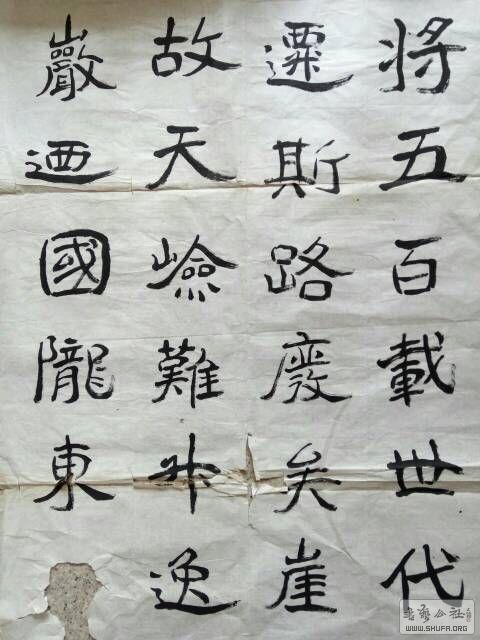 将五百載世代
遷斯路廢矣崖
故天嶮難升逸
巖迺國隴東
書藝公社
WWW.SHUFA.ORG